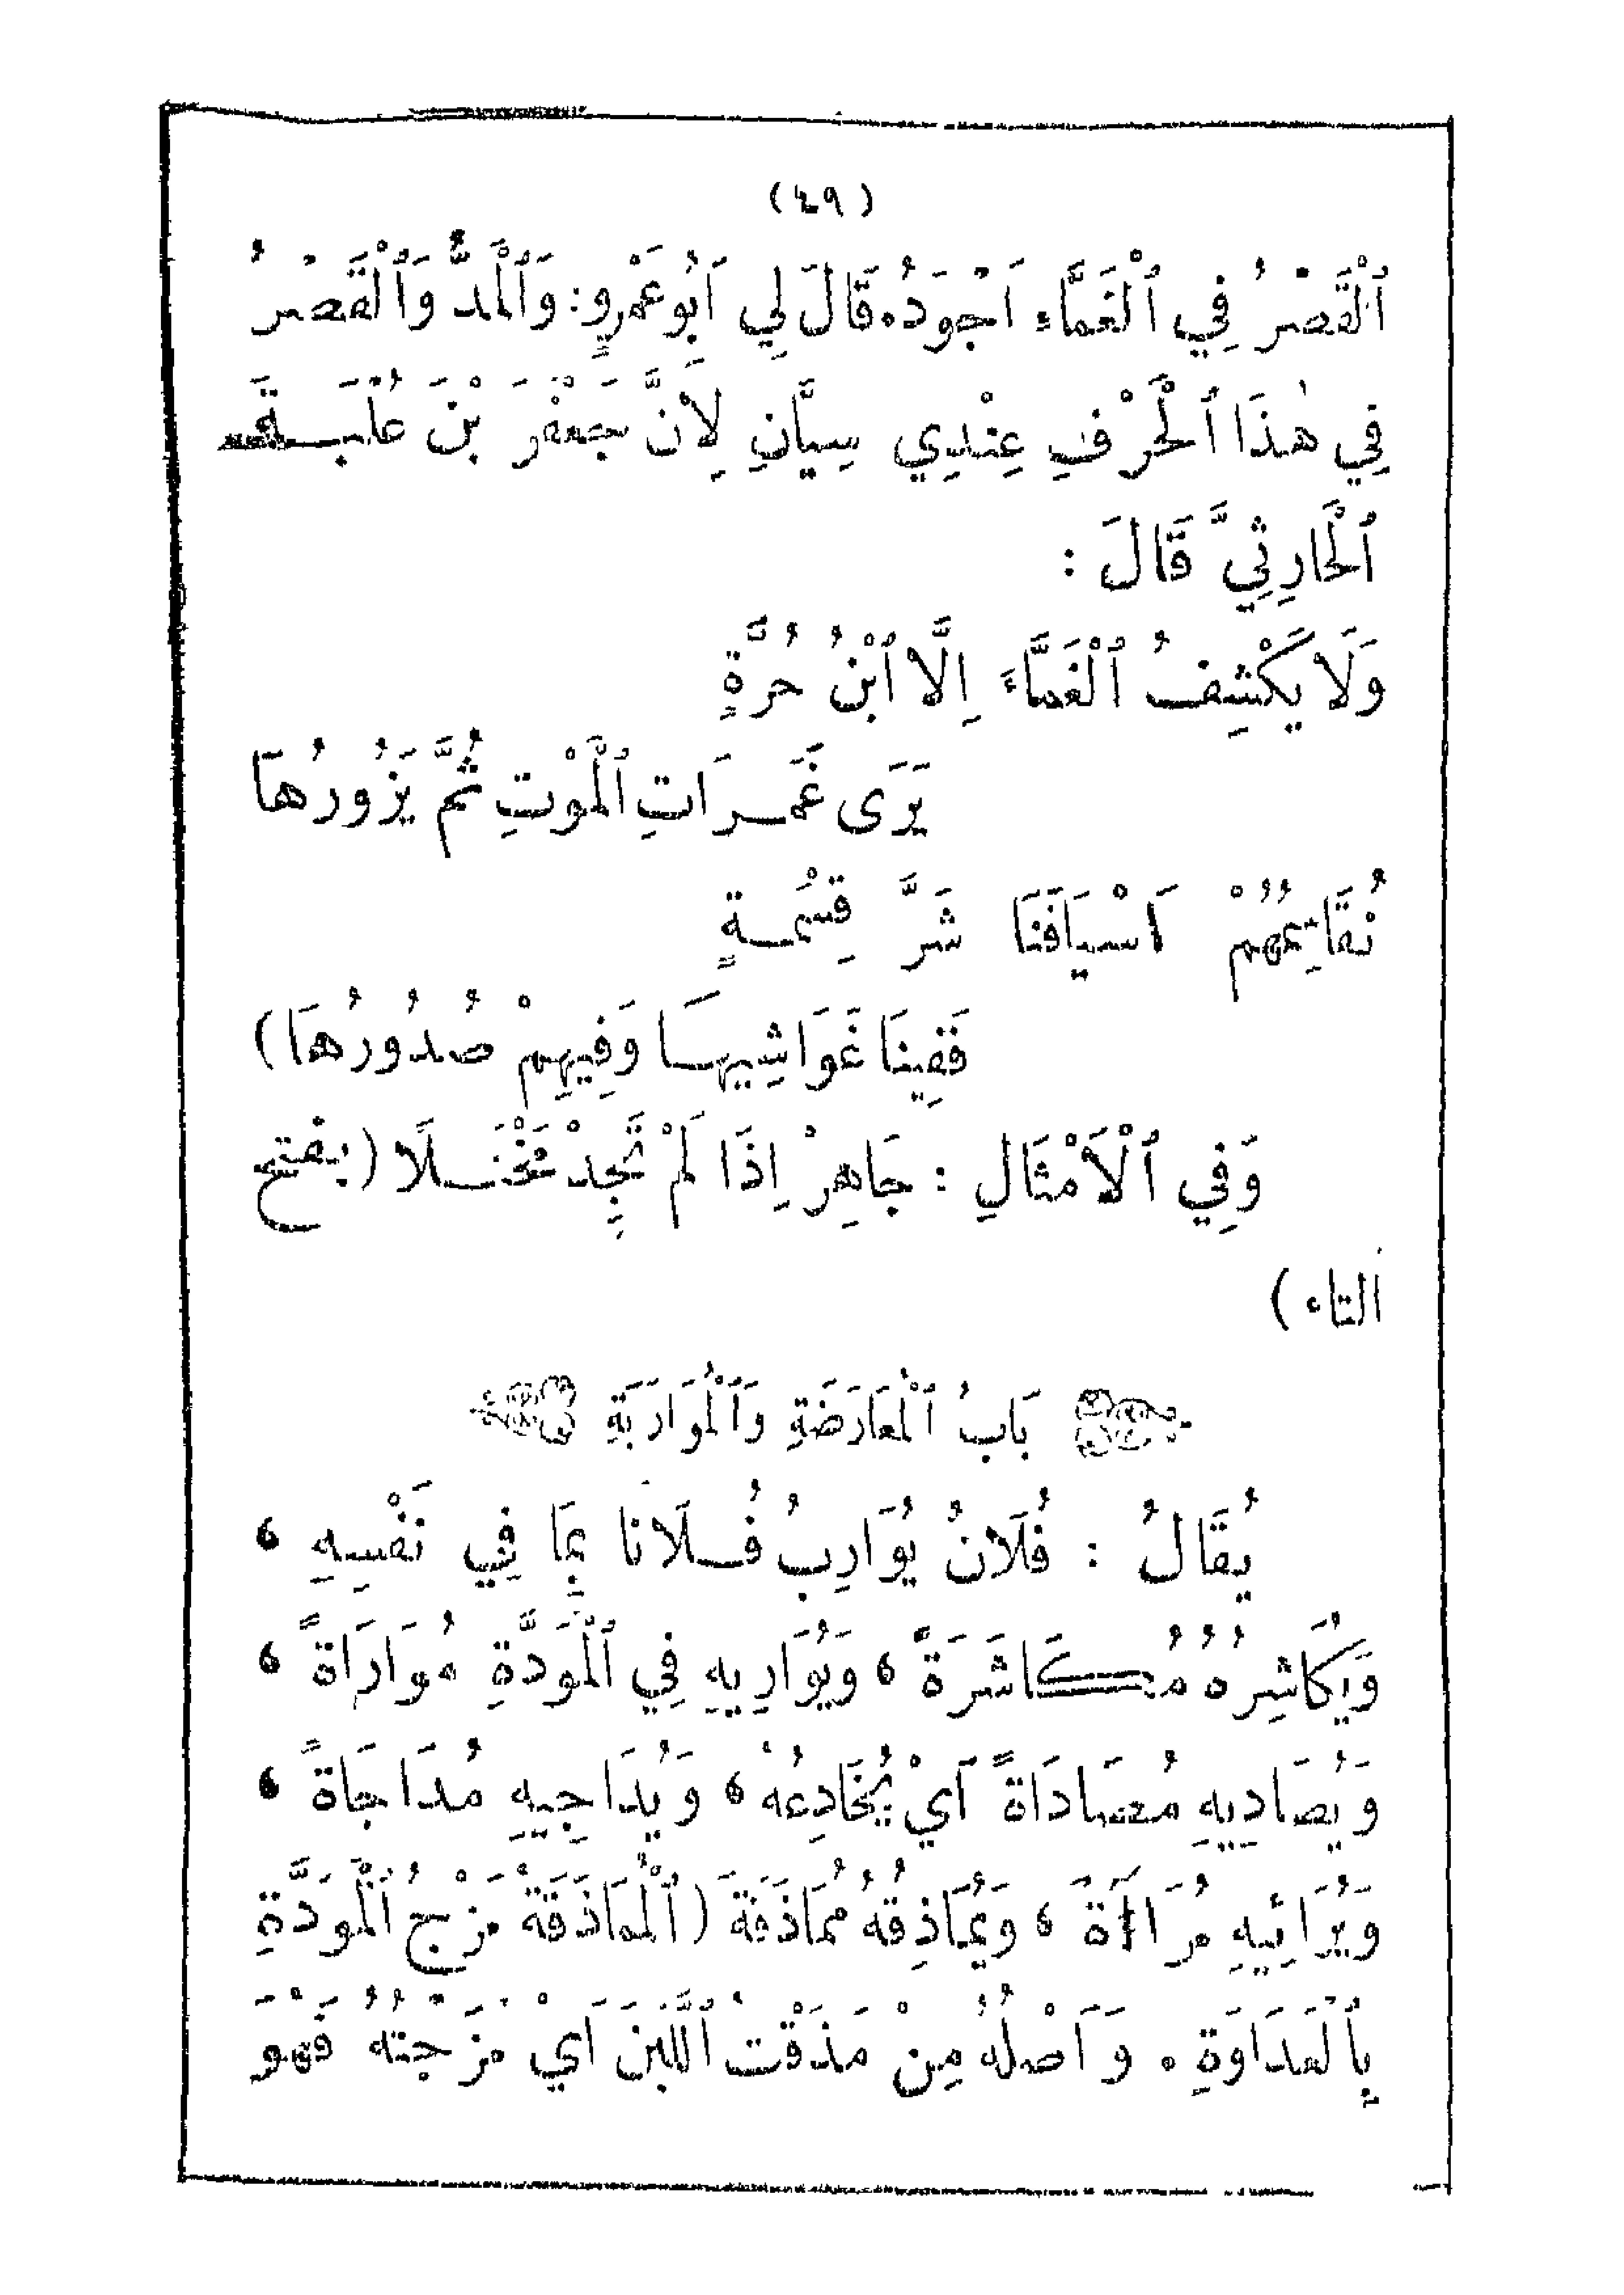 (٤٩)
ٱلْقَصْرُ فِي ٱلْغَمَّاءِ اَجْوَدُ. قَالَ لِي اَبُو عَمْرٍو: وَٱلْمَدُّ وَٱلْقَصْرُ
فِي هٰذَا ٱلْحَرْفِ عِنْدِي سِيَّانِ لِاَنَّ جَعْفَرَ بْنَ عُلْبَـةَ
ٱلْحَارِثِيَّ قَالَ :
وَلَا يَكْشِفُ ٱلْغَمَّاءَ اِلَّا ٱبْنُ حُرَّةٍ
يَرَى غَمَـرَاتِ ٱلْمَوْتِ ثُمَّ يَزُورُهَا
نُقَاسِمُهُمْ اَسْيَافَنَا شَرَّ قِسْمَـةٍ
فَفِينَا غَوَاشِيهَـا وَفِيهِمْ صُدُورُهَا)
وَفِي ٱلْاَمْثَالِ : جَاهِرْ اِذَا لَمْ تَجِدْ مَخْتَـلًا (بفتح
التاء)
بَابُ ٱلْمُعَارَضَةِ وَٱلْمُوَارَبَةِ
يُقَالُ : فُلَانٌ يُوَارِبُ فُـلَانًا بِمَا فِي نَفْسِهِ ،
وَيُكَاشِرُهُ مُـكَاشَرَةً ، وَيُوَارِيهِ فِي ٱلْمَوَدَّةِ مُوَارَاةً ،
وَيُصَادِيهِ مُصَادَاةً اَيْ يُخَادِعُهُ ، وَيُدَاجِيهِ مُدَاجَاةً ،
وَيُرَائِيهِ مُرَاآةً ، وَيُمَاذِقُهُ مُمَاذَقَةً (ٱلْمُمَاذَقَةُ مَزْجُ ٱلْمَوَدَّةِ
بِٱلْعَدَاوَةِ . وَاَصْلُهُ مِنْ مَذَقْتُ ٱللَّبَنَ اَيْ مَزَجْتُهُ فَهُوَ